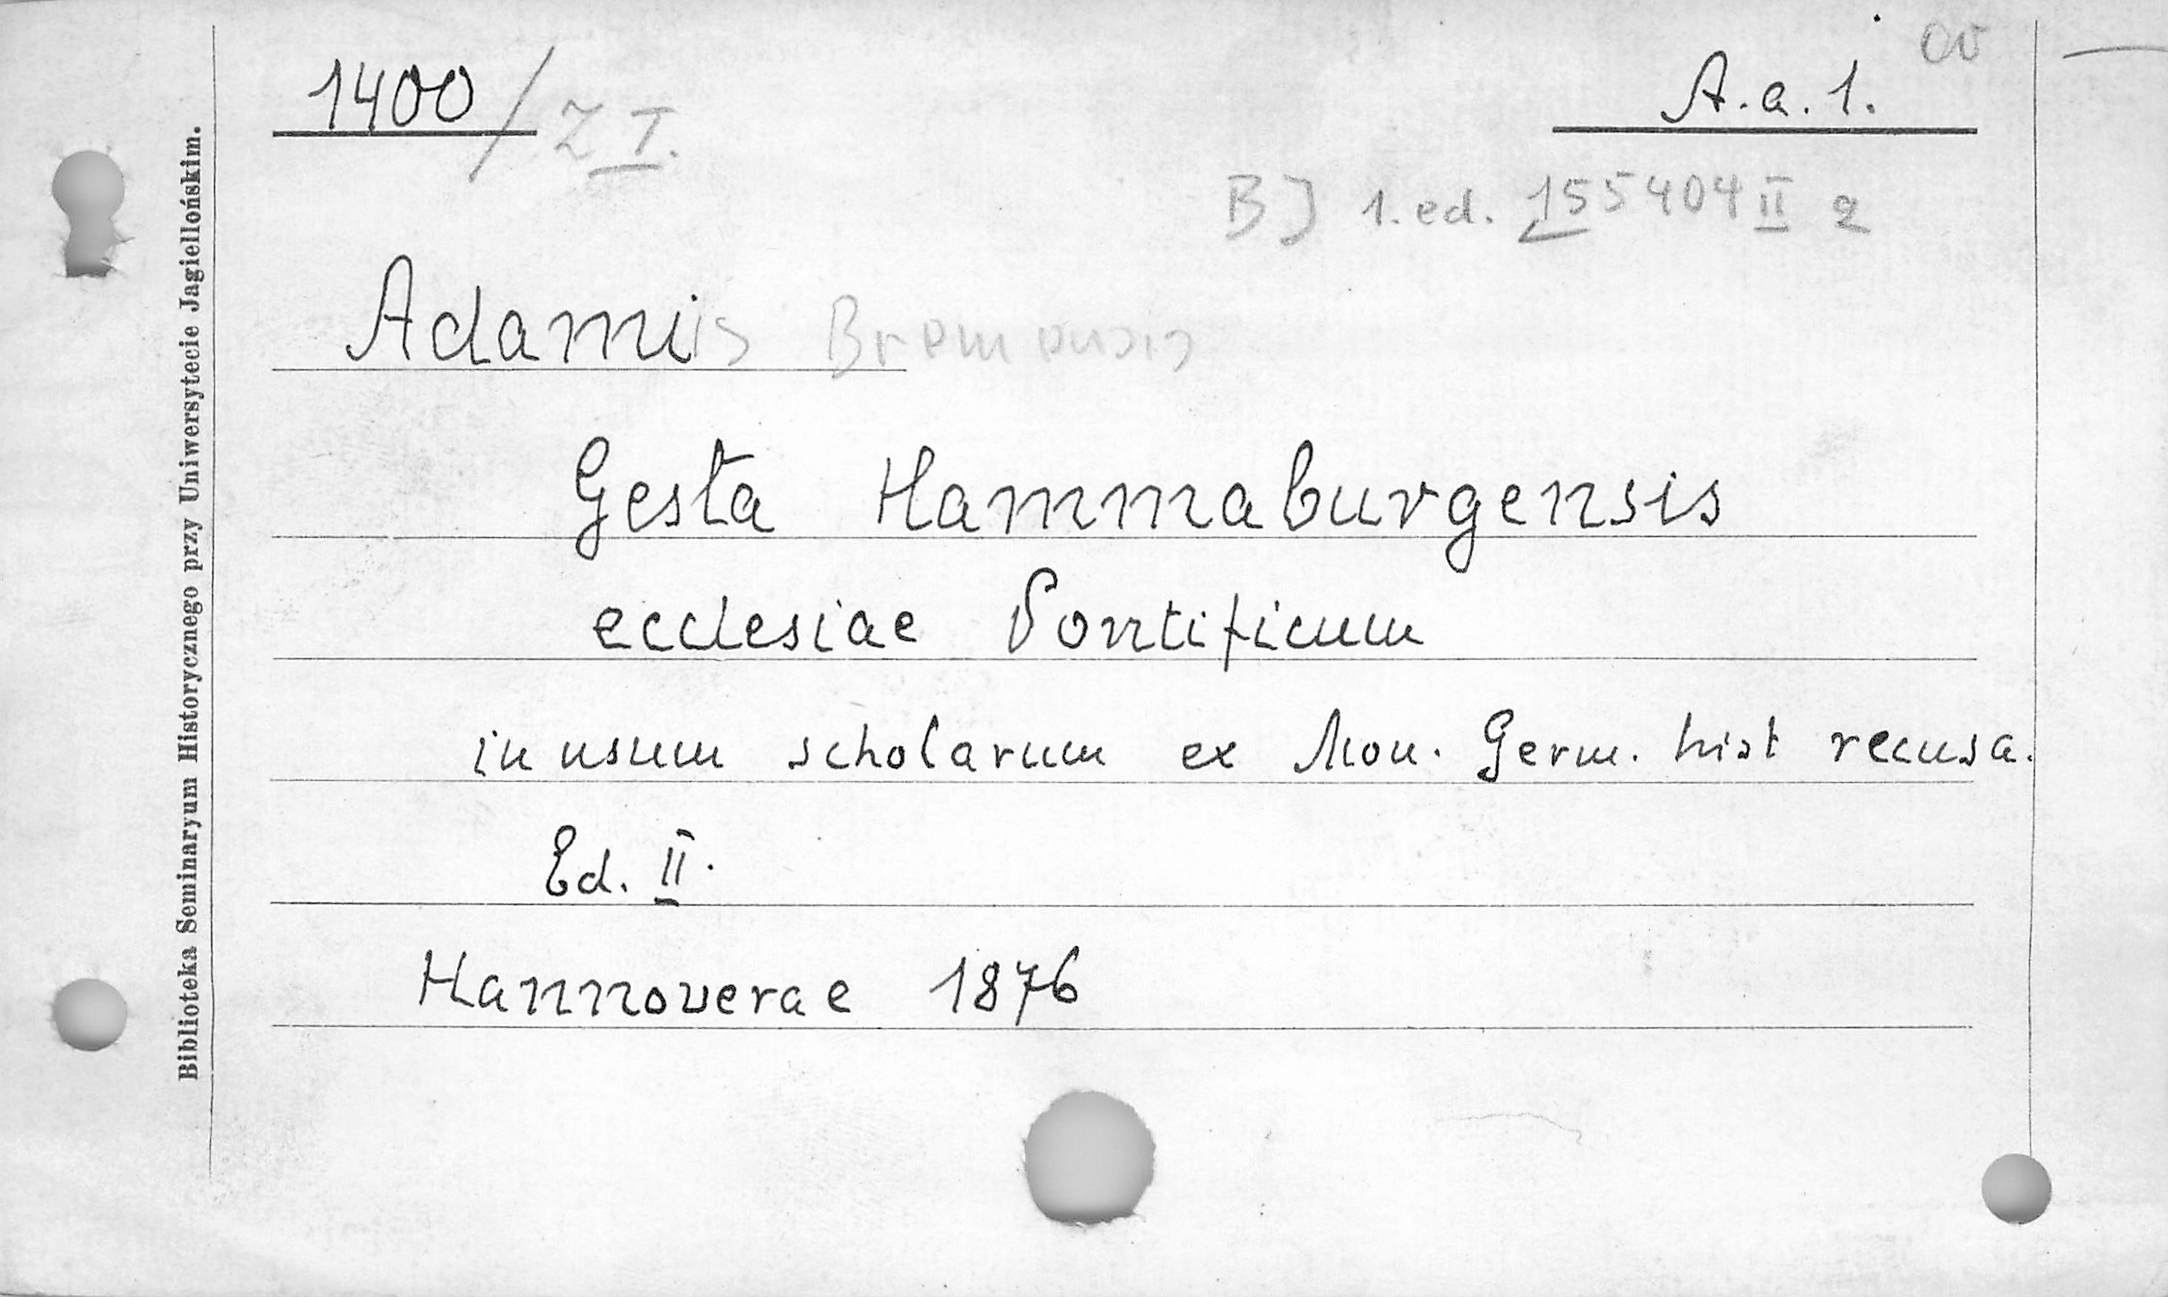 1400 / Z I. A.a.1.
BJ 1.ed. 155404 II 2
Adamis Bremensis
Gesta Hammaburgensis
ecclesiae Pontificum
in usum scholarum ex Mon. Germ. hist recusa.
Ed. II.
Hannoverae 1876
Biblioteka Seminaryum Historycznego przy Uniwersytecie Jagiellońskim.